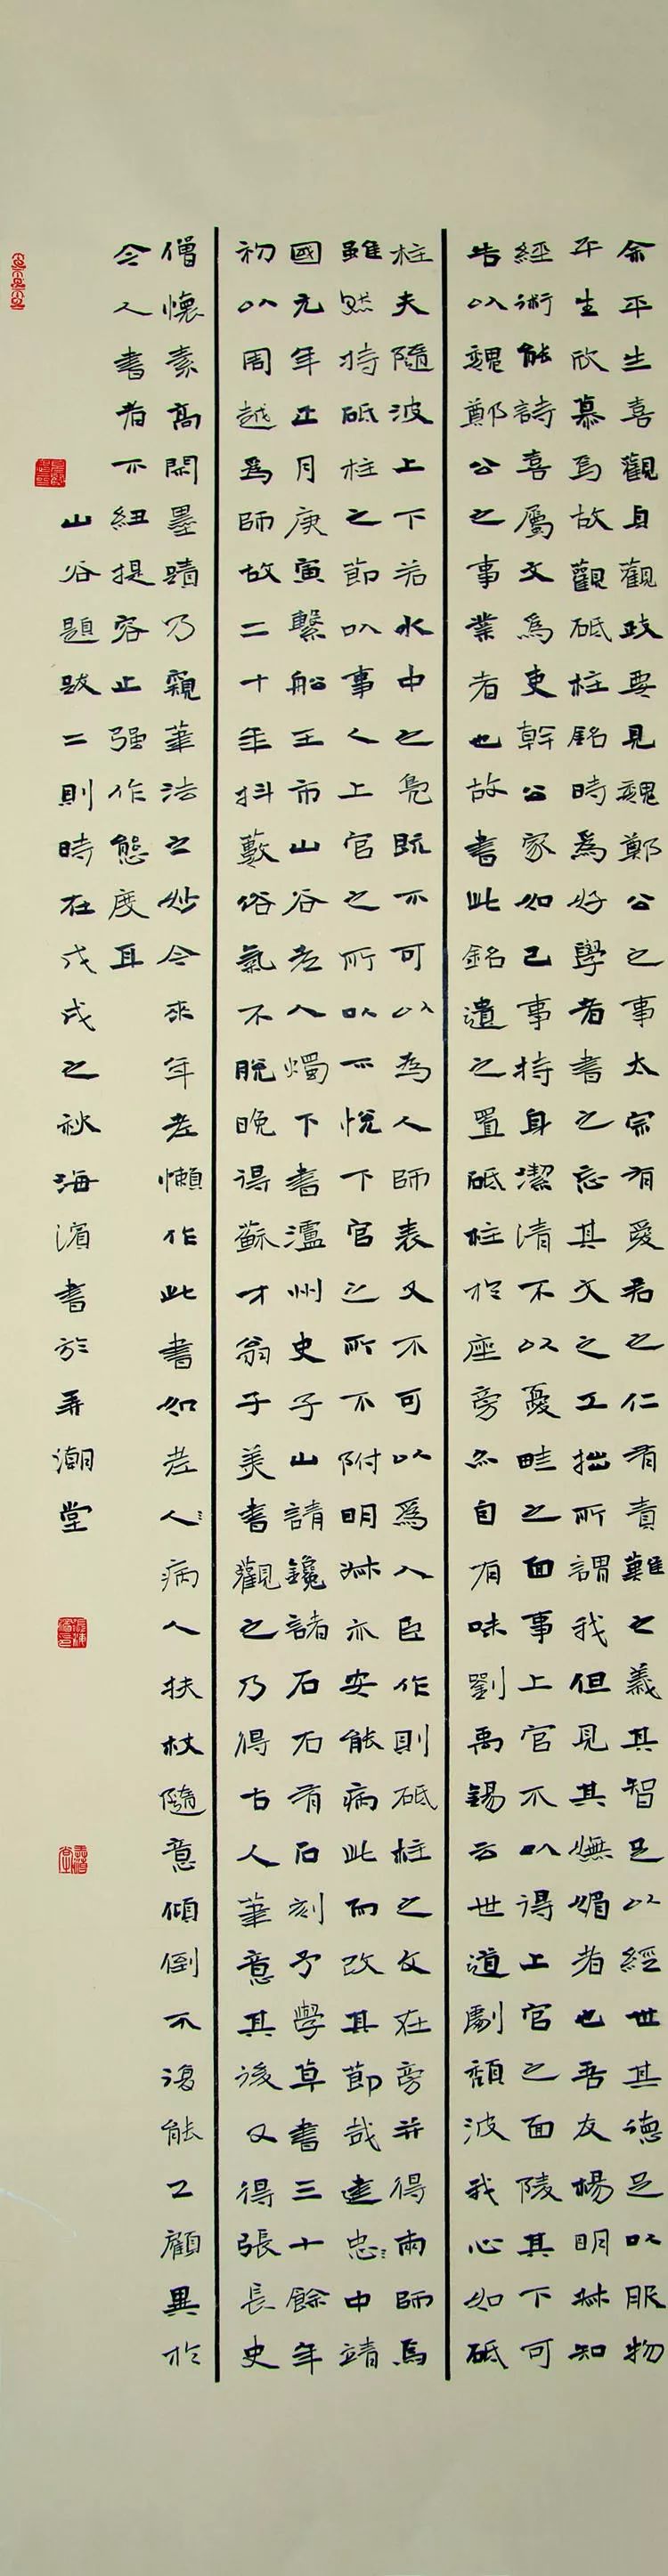 余平生喜觀貞觀政要見魏鄭公之事太宗有愛君之仁有責難之義其智足以經世其德足以服物
平生欣慕焉故觀砥柱銘時為好學者書之忘其文之工拙所謂我但見其嫵媚者也吾友楊明叔知
經術能詩喜屬文為吏幹公家如己事持身潔清不以憂畦之面事上官不以得上官之面陵其下可
告以魏鄭公之事業者也故書此銘遺之置砥柱於座旁亦自有味劉禹錫云世道劇頹波我心如砥
柱夫隨波上下若水中之鳧既不可以為人師表又不可以爲人臣作則砥柱之文在旁并得兩師焉
雖然持砥柱之節以事人上官之所以不悅下官之所不附明叔亦安能病此而改其節哉建忠〻中靖
國元年正月庚寅繫船王市山谷老人燭下書瀘州史子山請鑱諸石石有石刻予學草書三十餘年
初以周越爲師故二十年抖藪俗氣不脫晚得蘇才翁子美書觀之乃得古人筆意其後又得張長史
僧懷素高閑墨蹟乃窺筆法之妙今來年老懶作此書如老人〻病人扶杖隨意傾倒不復能工顧異於
今人書者不紐提容止强作態度耳
山谷題跋二則時在戊戌之秋海濱書於弄潮堂